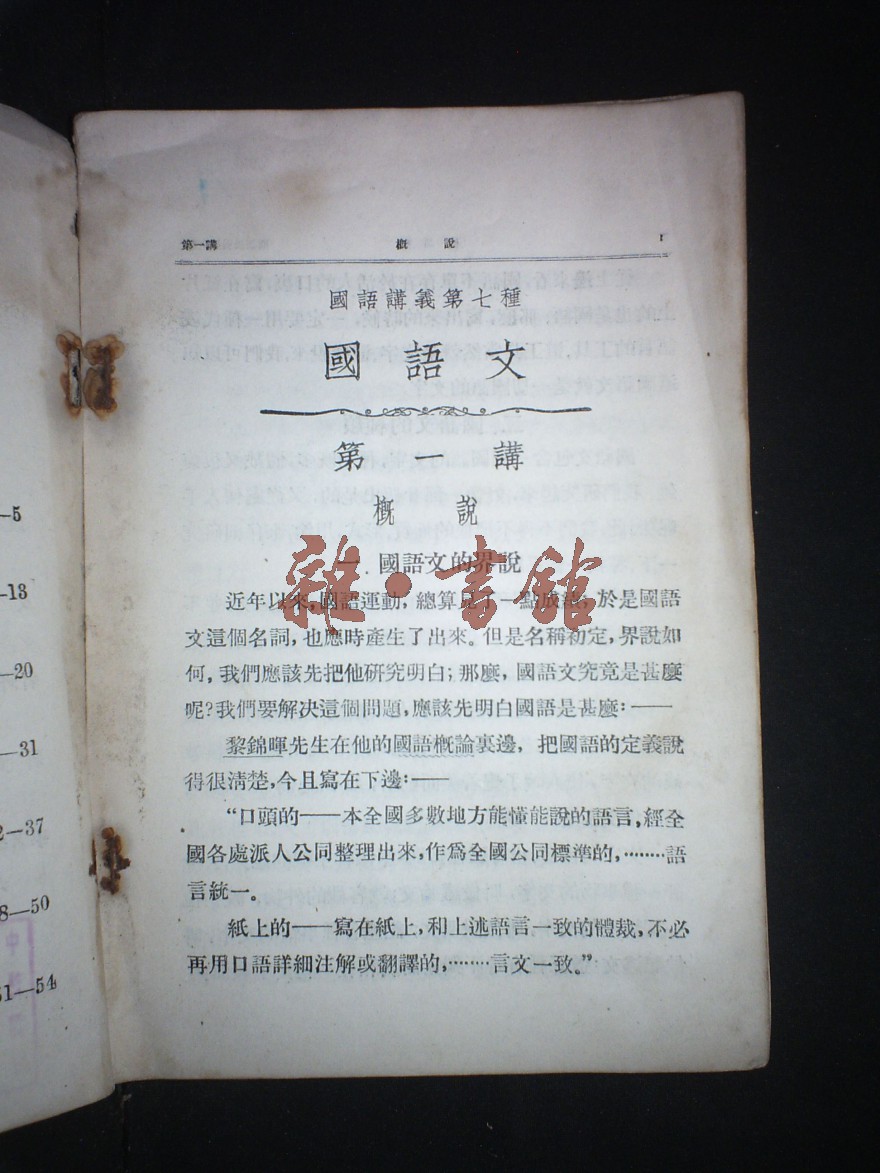 第一講 概說 1
國語講義第七種
國語文
第一講
概說
一 國語文的界說
近年以來,國語運動,總算見了一點成績;於是國語
文這個名詞,也應時產生了出來。但是名稱初定,界說如
何,我們應該先把他研究明白;那麼,國語文究竟是甚麼
呢?我們要解決這個問題,應該先明白國語是甚麼:——
黎錦暉先生在他的國語概論裏邊,把國語的定義說
得很淸楚,今且寫在下邊:——
“口頭的——本全國多數地方能懂能說的語言,經全
國各處派人公同整理出來,作爲全國公同標準的,………語
言統一。
紙上的——寫在紙上,和上述語言一致的體裁,不必
再用口語詳細注解或翻譯的,………言文一致。”
雜·書館
—5
—13
—20
—31
2—37
8—50
51—54
中